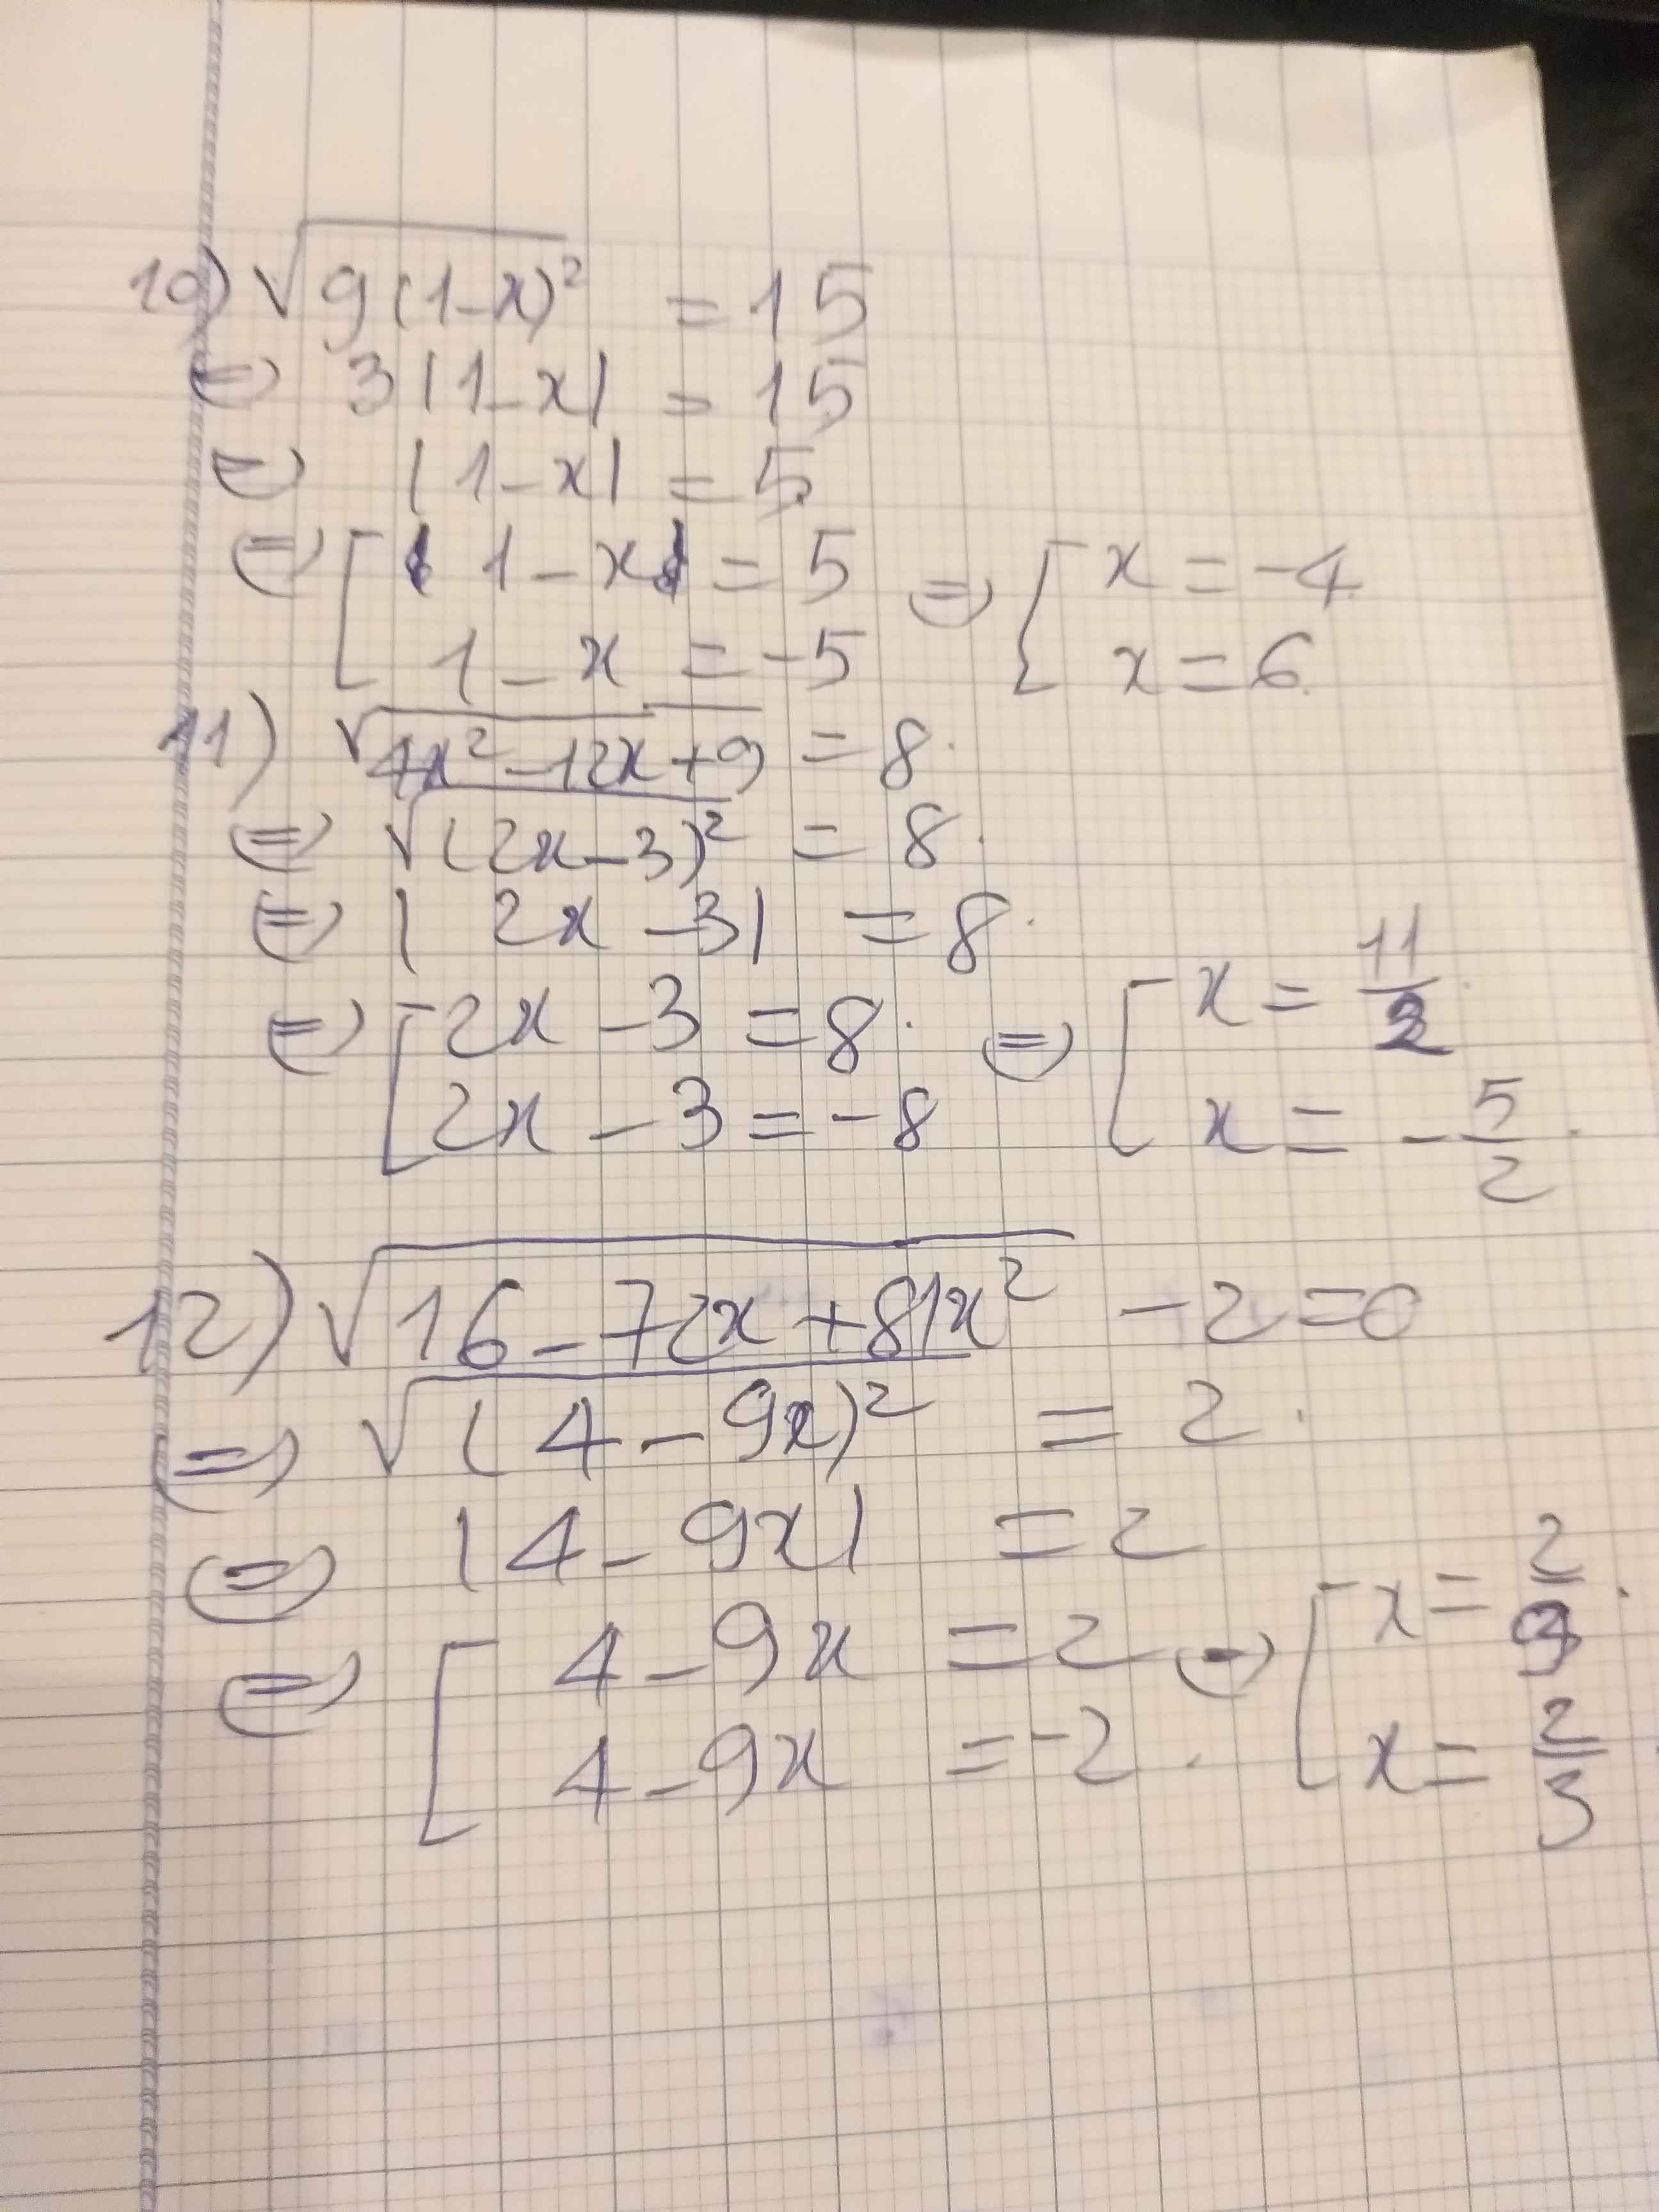 10) √9(1-x)² = 15
⇔ 3|1-x| = 15
⇔ |1-x| = 5
⇔ [ 1-x = 5 ⇔ [ x = -4
1-x = -5 x = 6
11) √4x²-12x+9 = 8
⇔ √(2x-3)² = 8.
⇔ |2x-3| = 8.
⇔ [ 2x-3 = 8. ⇔ [ x = 11/2
2x-3 = -8 x = -5/2.
12) √16-72x+81x² -2=0
⇔ √(4-9x)² = 2.
⇔ |4-9x| = 2
⇔ [ 4-9x = 2 ⇔ [ x = 2/9.
4-9x = -2. x = 2/3.